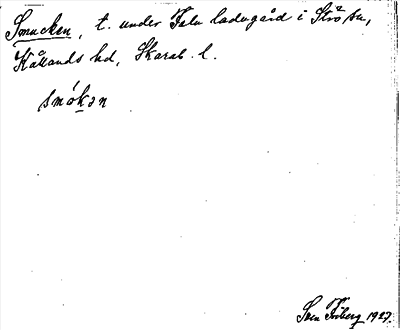 Smucken, t. under Falu ladugård i Strö sn,
Kållands hd, Skarab. l.
smókən
Sven Fröberg 1927.